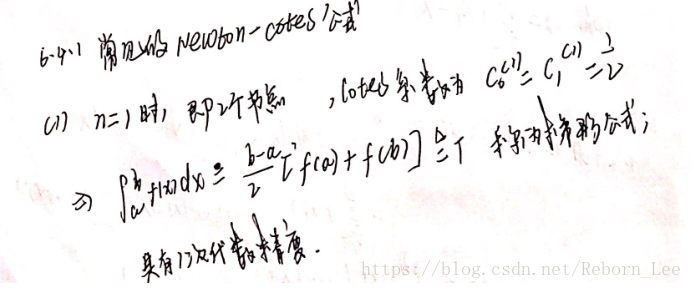 6.4.1 常见的 Newton-cotes' 公式
(1) n=1时,即2个节点,Cotes系数为 C₀⁽¹⁾ = C₁⁽¹⁾ = 1/2
⇒ ∫ₐᵇ f(x)dx ≈ (b-a)/2 [f(a)+f(b)] ≜ T 称为梯形公式;
具有1次代数精度.
https://blog.csdn.net/Reborn_Lee